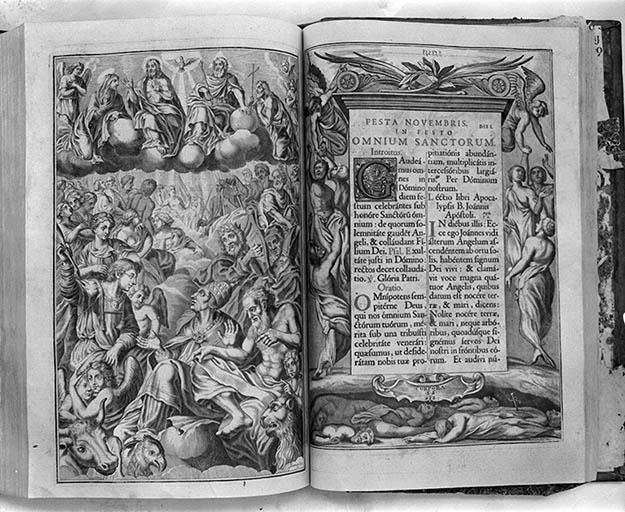 FESTA NOVEMBRIS. DIE I.
IN FESTO
OMNIUM SANCTORUM.
Introitus.
GAudeá-
mus om-
nes in
Dómino
diem fe-
stum celebrántes sub
honóre Sanctórũ ó-
mnium: de quorum so-
lemnitáte gaudẽt An-
geli, & colláudant Fí-
lium Dei. Psal. Exul-
táte justi in Dómino:
rectos decet collaudá-
tio. ℣. Glória Patri.
Oratio.
OMnípotens sem-
pitérne Deus,
qui nos ómnium San-
ctórum tuórum, mé-
rita sub una tribuísti
celebritáte venerári:
quæsumus, ut desíde-
rátam nobis tuæ pro-
pitiatiónis abundán-
tiam, multiplicátis in-
tercessóribus largiá-
ris. Per Dóminum
nostrum.
Léctio libri Apoca-
lypsis B. Joánnis
Apóstoli.
IN diébus illis: Ec-
ce ego Joánnes vidi
álterum Angelum as-
cendéntem ab ortu so-
lis, habéntem signum
Dei vivi: & clamá-
vit voce magna quá-
tuor Angelis, quibus
datum est nocére ter-
ræ, & mari, dicens:
Nolíte nocére terræ,
& mari, neque arbó-
ribus, quoadúsque si-
gnémus servos Dei
nostri in fróntibus eó-
rum. Et audívi nú-